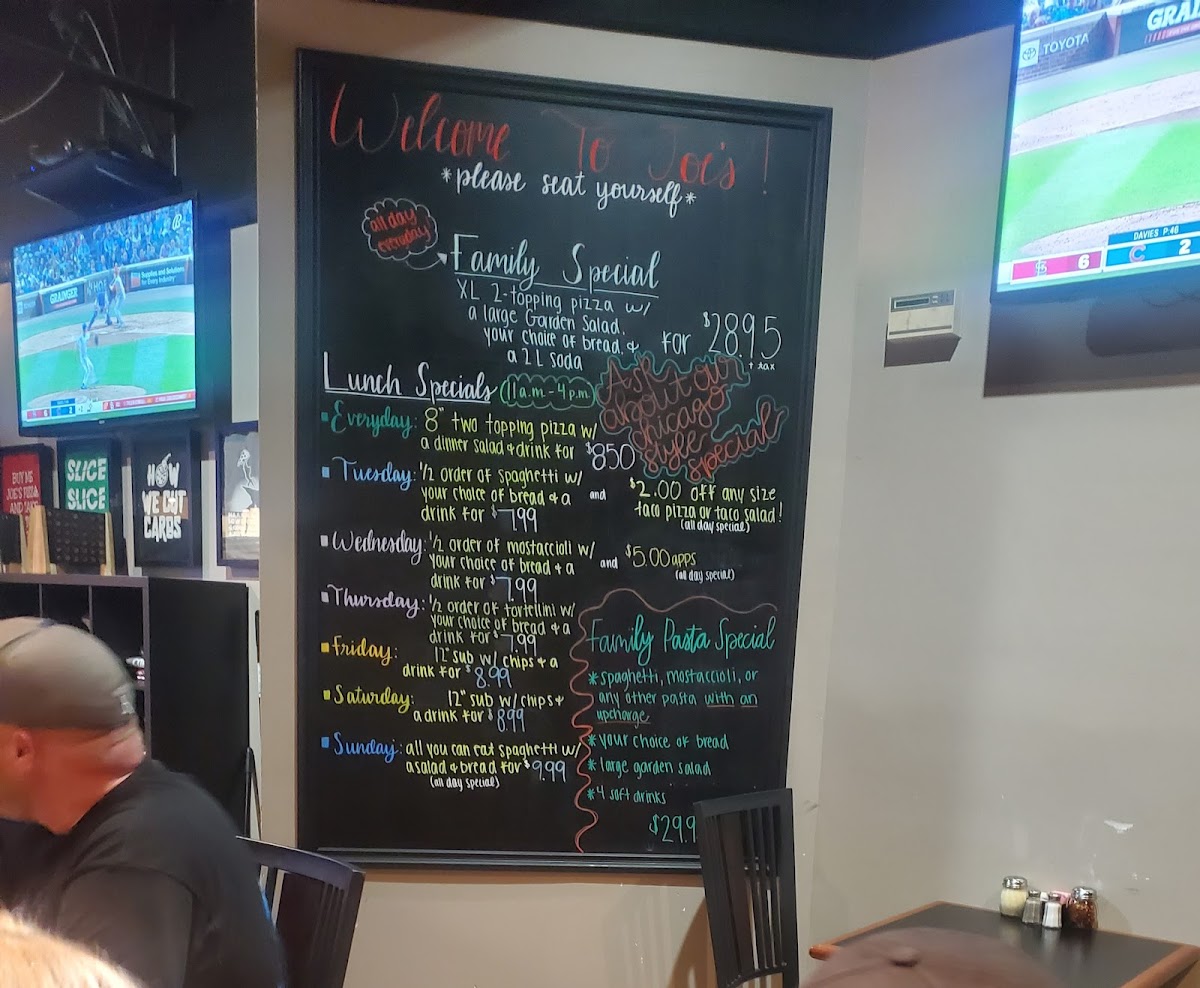 Welcome To Joe's!
*please seat yourself*
all day
everyday
Family Special
XL 2-topping pizza w/
a large Garden Salad,
your choice of bread, &
a 2L soda
for $28.95
+ tax
Lunch Specials (11a.m-4p.m)
Ask about our
chicago
style
special
Everyday: 8" two topping pizza w/
a dinner salad & drink for $850
Tuesday: 1/2 order of spaghetti w/
your choice of bread & a
drink for $7.99
and
$2.00 off any size
taco pizza or taco salad!
(all day special)
Wednesday: 1/2 order of mostaccioli w/
your choice of bread & a
drink for $7.99
and $5.00 apps
(all day special)
Thursday: 1/2 order of tortellini w/
your choice of bread & a
drink for $7.99
Friday: 12" sub w/ chips & a
drink for $8.99
Saturday: 12" sub w/ chips &
a drink for $8.99
Sunday: all you can eat spaghetti w/
a salad & bread for $9.99
(all day special)
Family Pasta Special
*spaghetti, mostaccioli, or
any other pasta with an
upcharge
*your choice of bread
*large garden salad
*4 soft drinks
$29.9
GRAINGER
Supplies and Solutions
for Every Industry
BUY ME
JOE'S PIZZA
AND
SLICE
SLICE
HOW
WE CUT
CARBS
TOYOTA
GRAI
DAVIES P:46
6
C 2